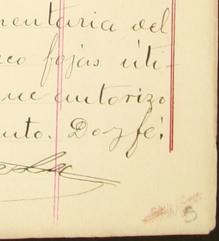 mentaria del
co fojas úti-
ue autorizo
nto. Doy fé.